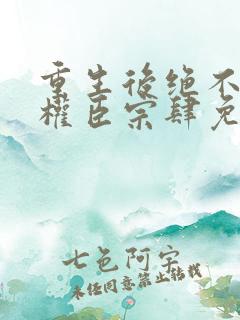 重生後绝不
權臣宗肆免
七色阿宝
未经同意禁止转载